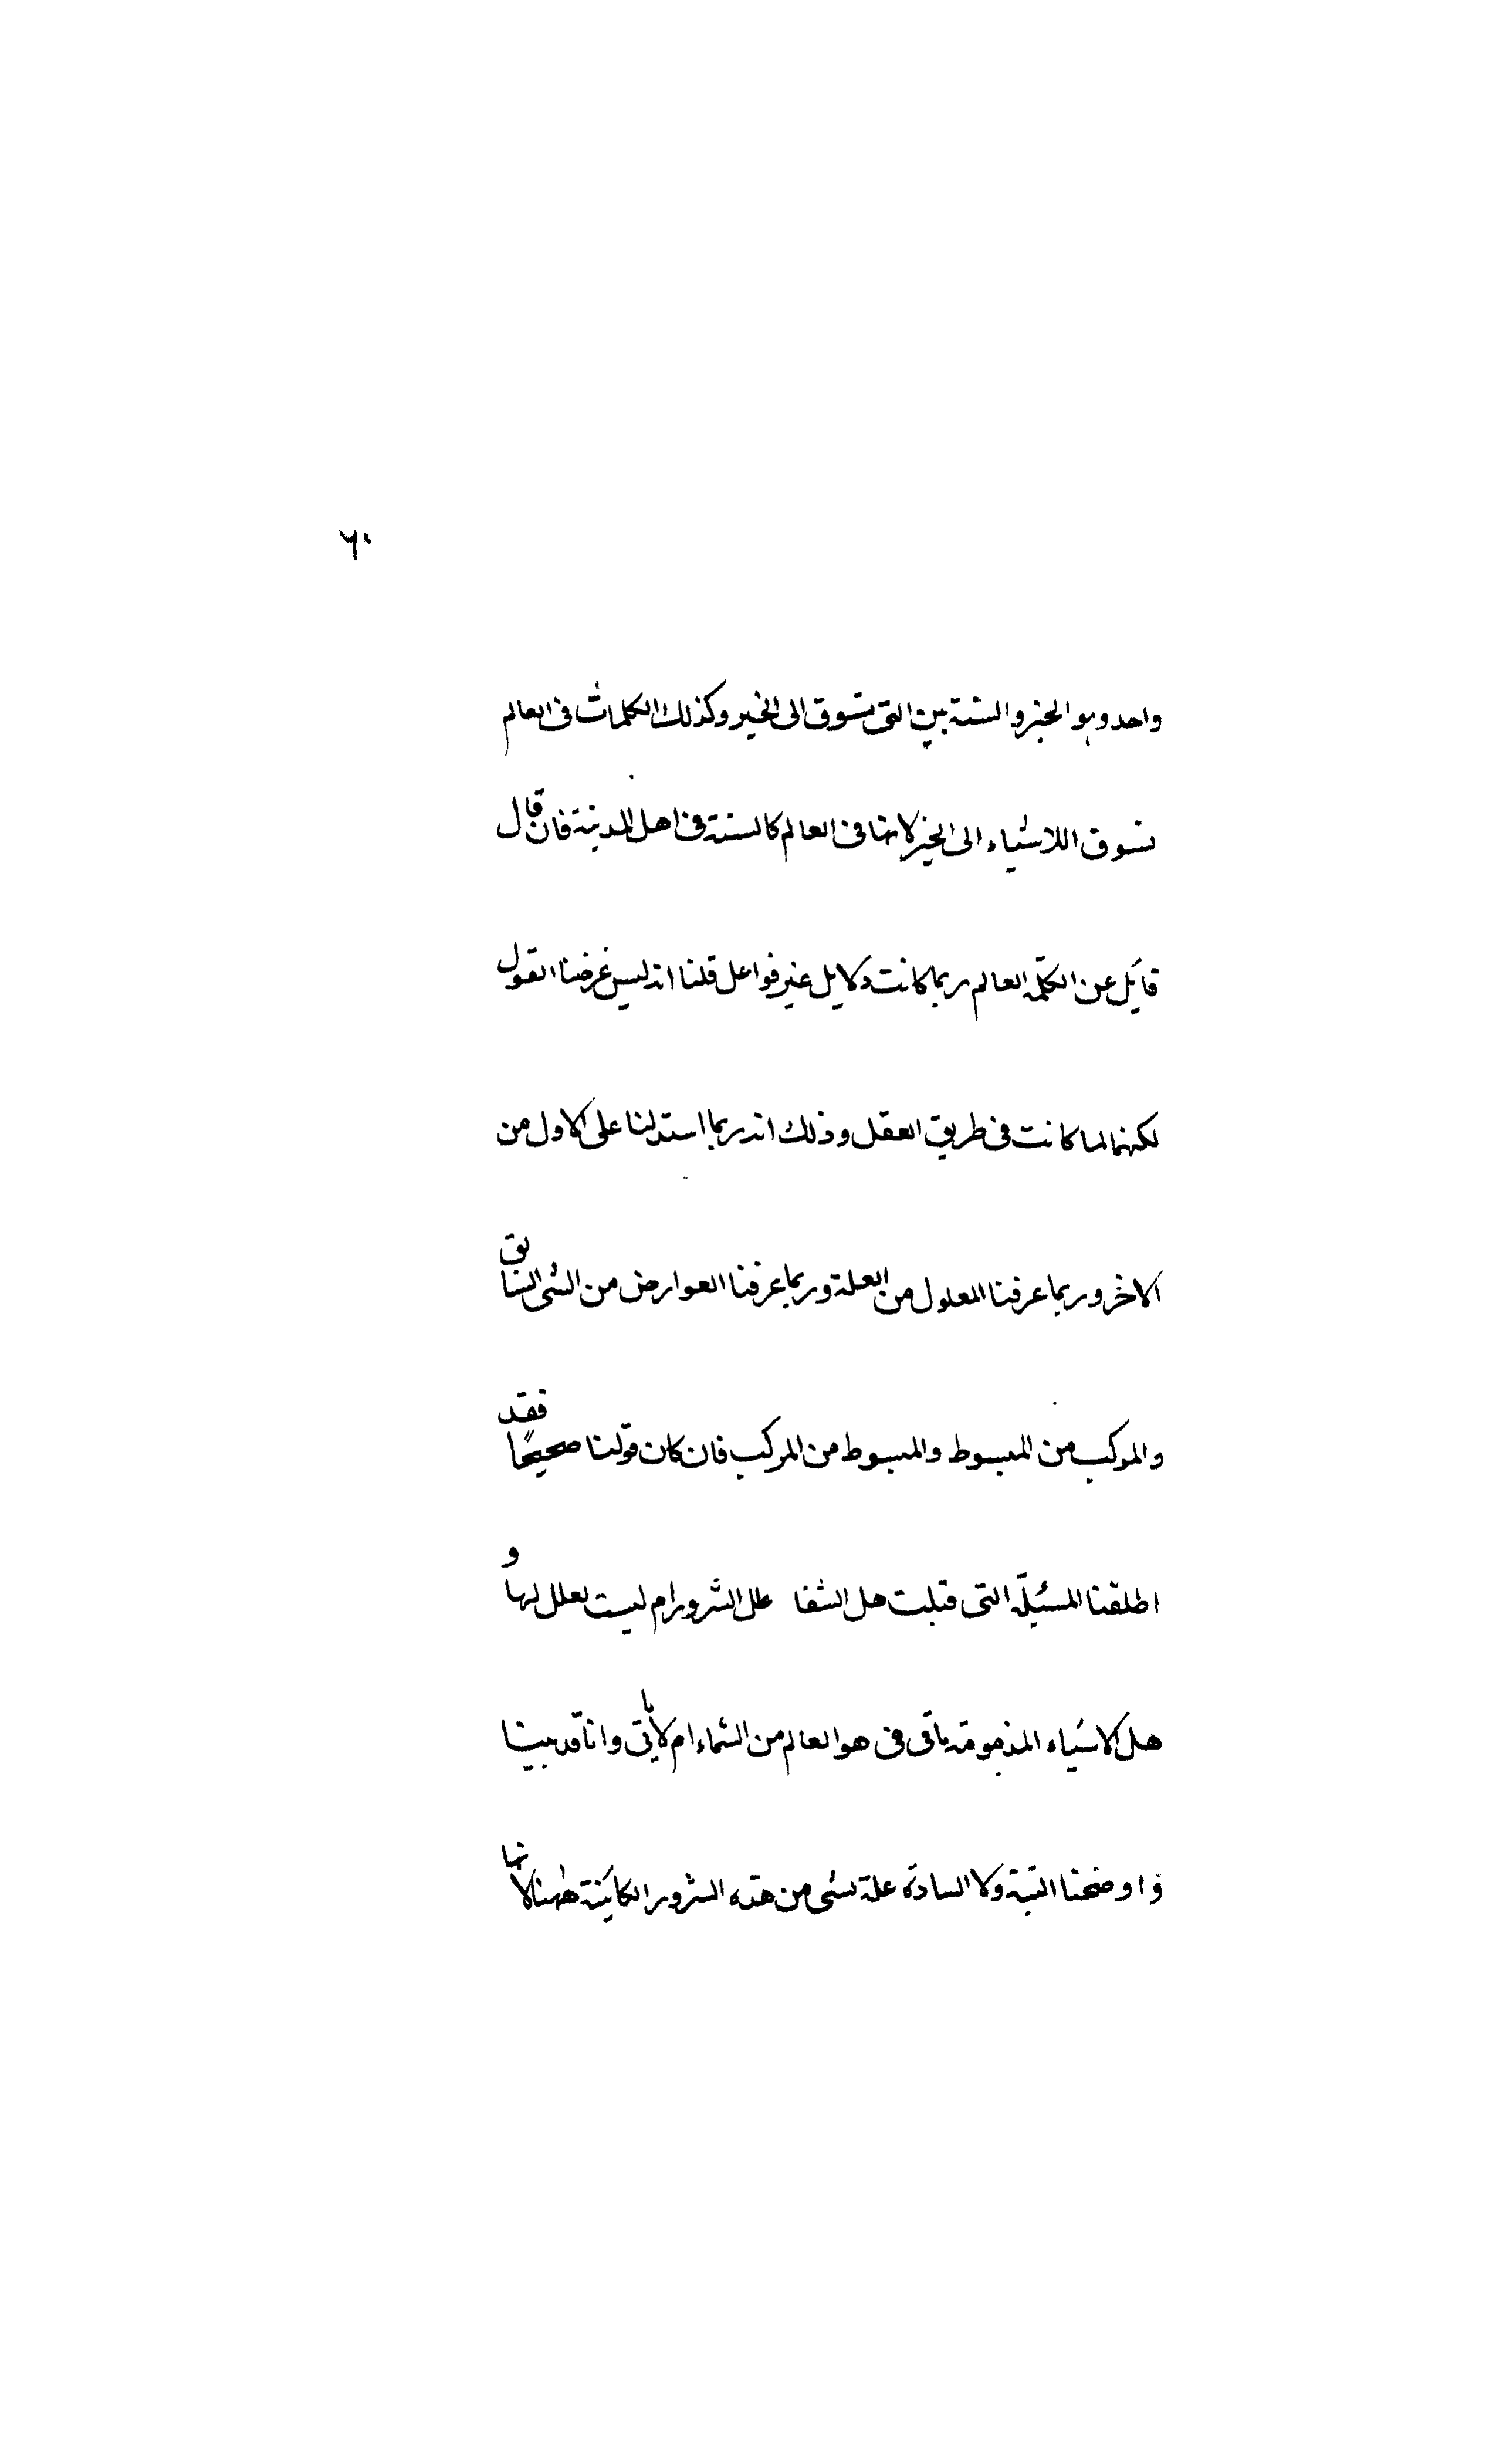 ٦٠
واحد وهو الخير والسنة بين التى تسوق الى الخير وكذلك الكلمات فى العالم
تسوق اللاشياء الى الخير لانها فى العالم كالسنة فى اهل المدينة فان قال
قايل عن الكلمة العالم ربما كانت دلايل غير فواعل قلنا انه ليس غرضنا القول
لكنها لما كانت فى طريق العقل وذلك انه ربما استدلنا على الاول من
الاخر وربما عرفنا المعلول من العلة وربما عرفنا العوارض من الشى السابق
والمركب من المبسوط والمبسوط من المركب فان كان قولنا صحيحًا فقد
اطلقنا المسئيلة التى قبلت هل الشفا علل الشرور ام ليست بعلل لها و
هل الاشياء المذمومة ياتى فى هوا لعالم من السماء ام لا ياتى وانا قد بينا
و اوضحنا البتة ولا السادة علة شى من هذه الشرور الكاينة ههنا لانها